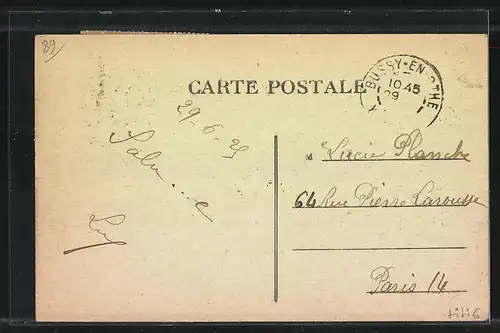 89
CARTE POSTALE
BUSSY-EN-OTHE
10 45
29
29-6-29
M Lucie Planche
64 Rue Pierre Larousse
Paris 14